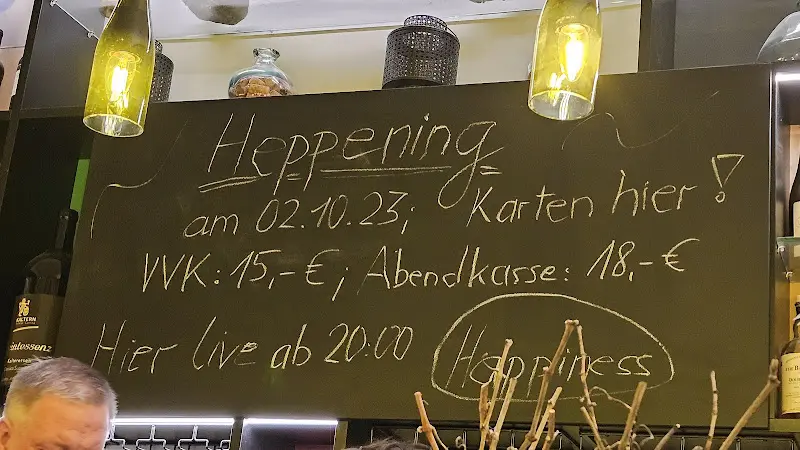 Heppening
am 02.10.23; Karten hier!
VVK: 15,-€; Abendkasse: 18,-€
Hier live ab 20:00 Happiness
KALTERN